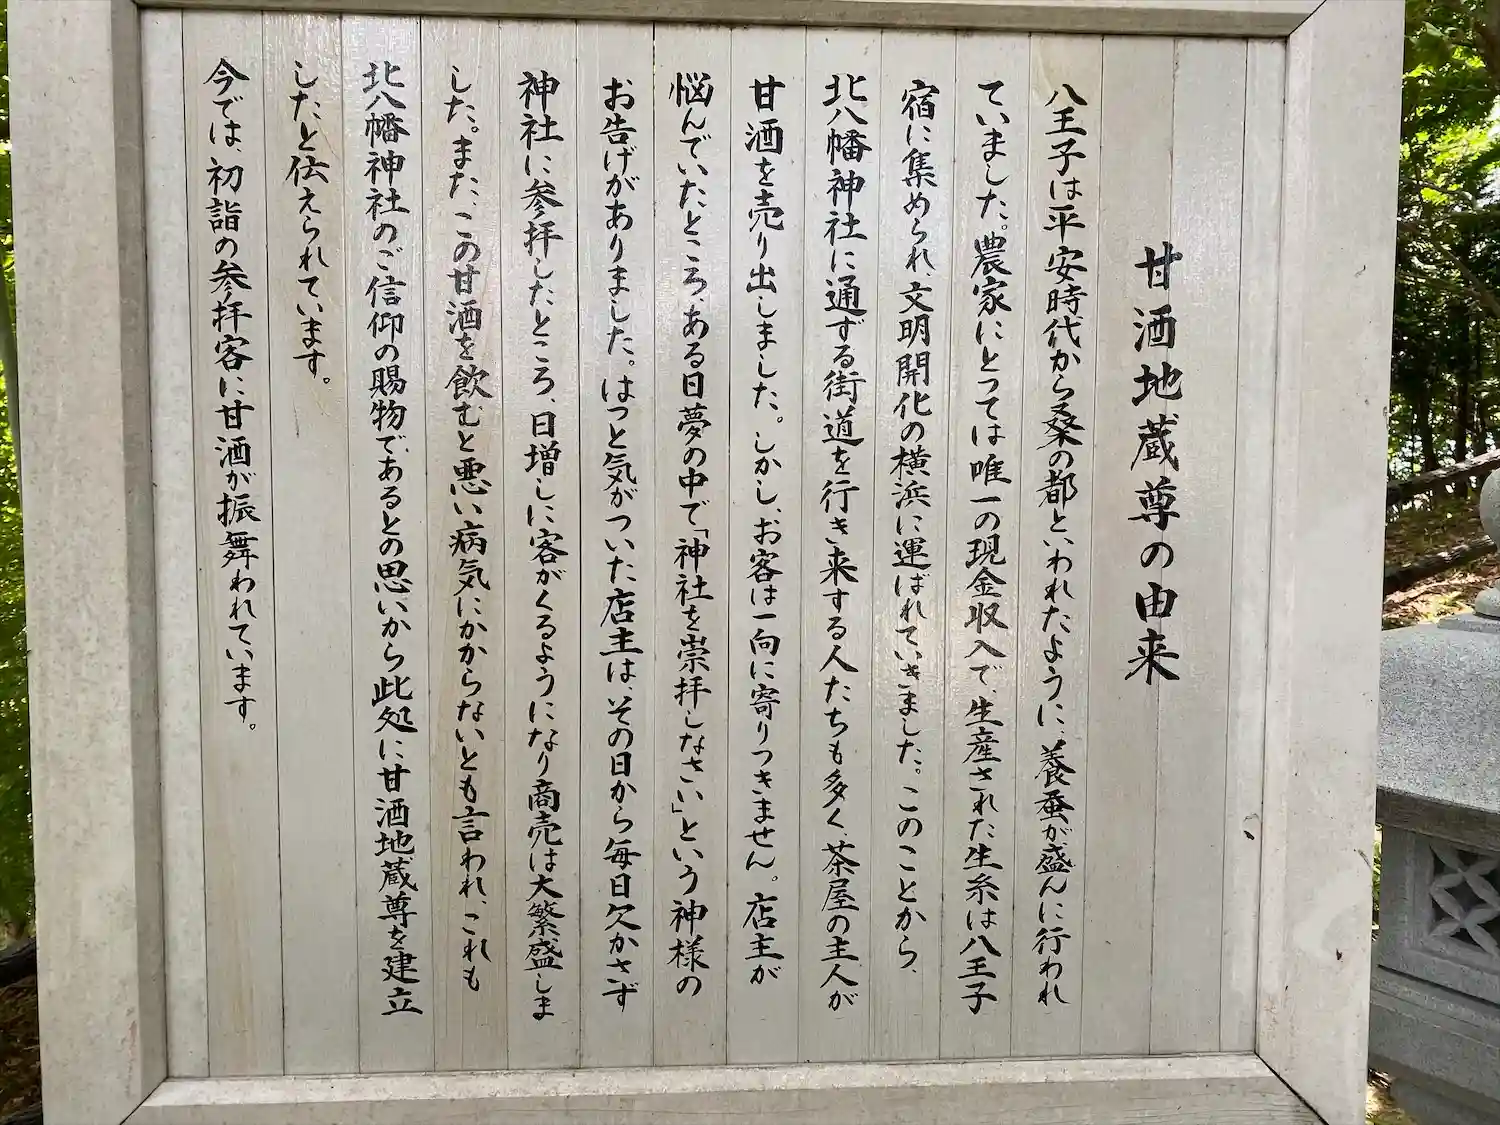 甘酒地蔵尊の由来
八王子は平安時代から桑の都といわれたように、養蚕が盛んに行われ
ていました。農家にとっては唯一の現金収入で、生産された生糸は八王子
宿に集められ、文明開化の横浜に運ばれていきました。このことから、
北八幡神社に通ずる街道を行き来する人たちも多く、茶屋の主人が
甘酒を売り出しました。しかし、お客は一向に寄りつきません。店主が
悩んでいたところ、ある日夢の中で「神社を崇拝しなさい」という神様の
お告げがありました。はっと気がついた店主は、その日から毎日欠かさず
神社に参拝したところ、日増しに客がくるようになり商売は大繁盛しま
した。また、この甘酒を飲むと悪い病気にかからないとも言われ、これも
北八幡神社のご信仰の賜物であるとの思いから此処に甘酒地蔵尊を建立
したと伝えられています。
今では、初詣の参拝客に甘酒が振舞われています。